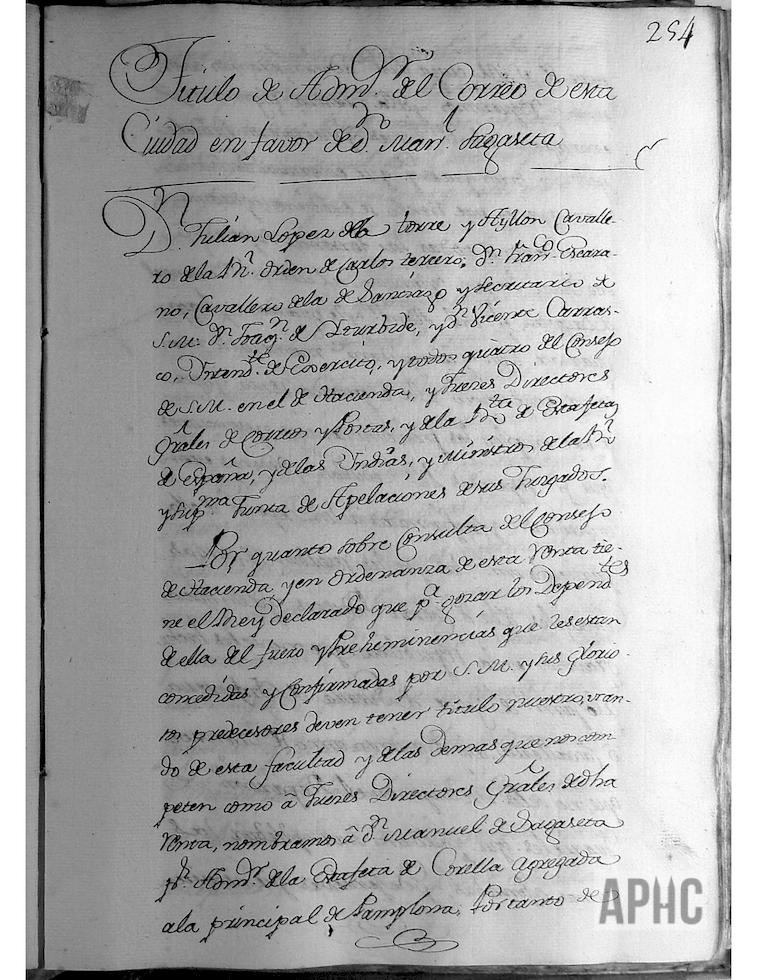 254
Titulo de Adm.or del Correo de esta
Ciudad en favor de D.n Man.l Sagaseta
D.n Julian Lopez dela torre y Ayllon Cavalle-
ro dela R.l orden de Carlos tercero, D.n Fran.co Escara-
no, Cavallero dela de Santiago y Secretario de
S.M. D.n Joaq.n de Yturbide, y D.n Vicente Carras-
co, Yntend.te de Exercito, y todos quatro del Consejo
de S.M. en el de Hacienda, y Juezes Directores
Grâles de Correos y Postas, y dela R.ta de Estafetas
de España, y delas Yndias, y Ministros dela R.l
y Sup.ma Junta de Apelaciones desus Juzgados.
Por quanto sobre Consulta del Consejo
de Hacienda y en ordenanza de esta Renta tie-
ne el Rey declarado que p.a gozar los Depend.tes
de ella del fuero y Preheminencias que les estan
concedidas y Confirmadas por S.M. y sus Glorio-
sos predecesores deven tener titulo nuestro, usan-
do de esta facultad y delas demas que nos com
peten como â Juezes Directores Grâles de dha
Renta, nombramos â D.n Manuel de Sagaseta
p.r Adm.or dela Estafeta de Corella agregada
ala principal de Pamplona, Portanto de
APHC